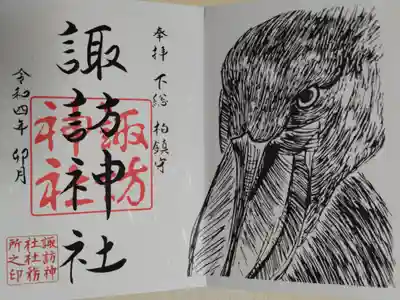 奉拝 下総 柏鎮守
諏訪神社
諏訪
神社
令和四年 卯月
諏訪神
社社務
所之印